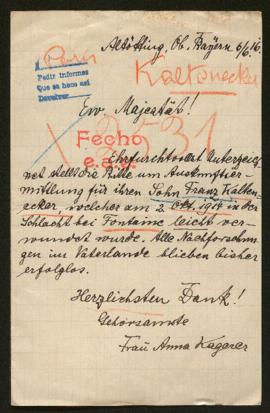 Altötting, Ob. Bayern 6/6.16.
Paris
Kaltenecker
Pedir informes
Que se hace así
Devolver
Euv Majestät!
2531
Fecho
e.a.d.
Ehrfurchtvollst Unterzeich
net stellt die Bitte um Auskunftser=
mittlung für ihren Sohn Franz Kalten=
ecker, welcher am 2. Okt. 1914 in der
Schlacht bei Fontaine leicht ver=
wundet wurde. Alle Nachforschun
gen im Vaterlande blieben bisher
erfolglos.
Herzlichsten Dank!
Gehorsamste
Frau Anna Kagerer